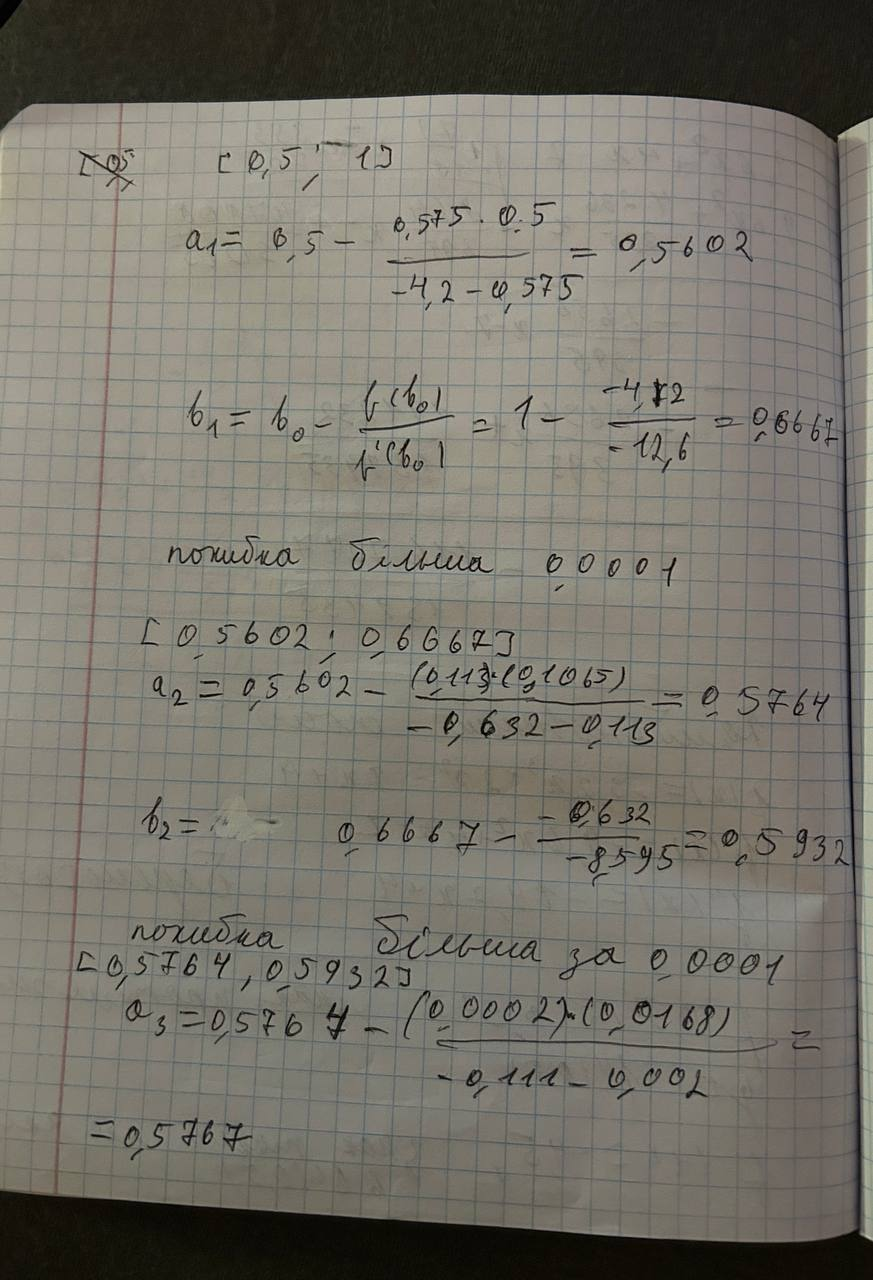 [ 0,5 ; 1]
a₁ = 0,5 − (0,575 · 0.5)/(−4,2 − 0,575) = 0,5602
b₁ = b₀ − f(b₀)/f'(b₀) = 1 − (−4,2)/(−12,6) = 0,6667
похибка більша 0,0001
[ 0,5602 ; 0,6667]
a₂ = 0,5602 − ((0,113)·(0,1065))/(−0,632 − 0,113) = 0,5764
b₂ = 0,6667 − (−0,632)/(−8,595) = 0,5932
похибка більша за 0,0001
[0,5764 , 0,5932]
a₃ = 0,5764 − ((0,0002)·(0,0168))/(−0,111 − 0,002) =
= 0,5767